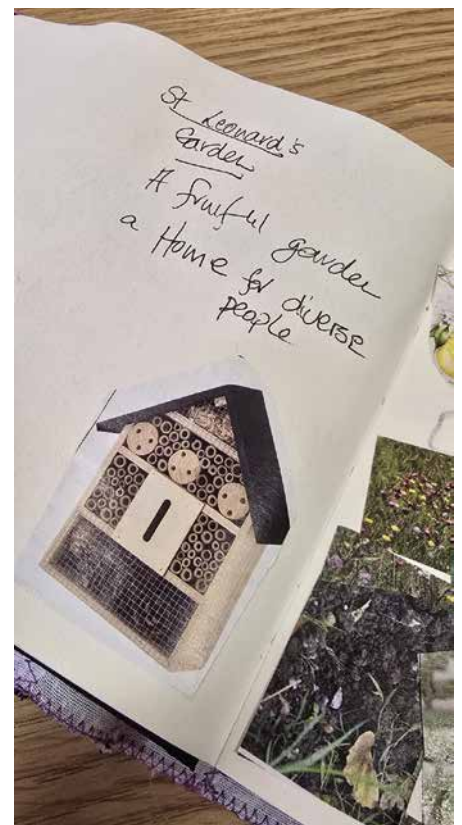 St Leonard's
Garden
A fruitful garden
a Home for diverse
people